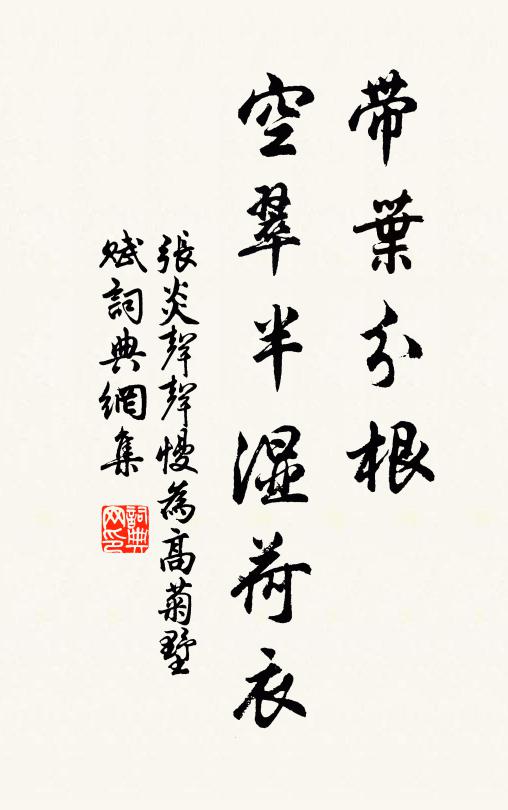 帶葉分根
空翠半濕荷衣
張炎聲聲慢為高菊墅
賦詞典網集
詞典
网印